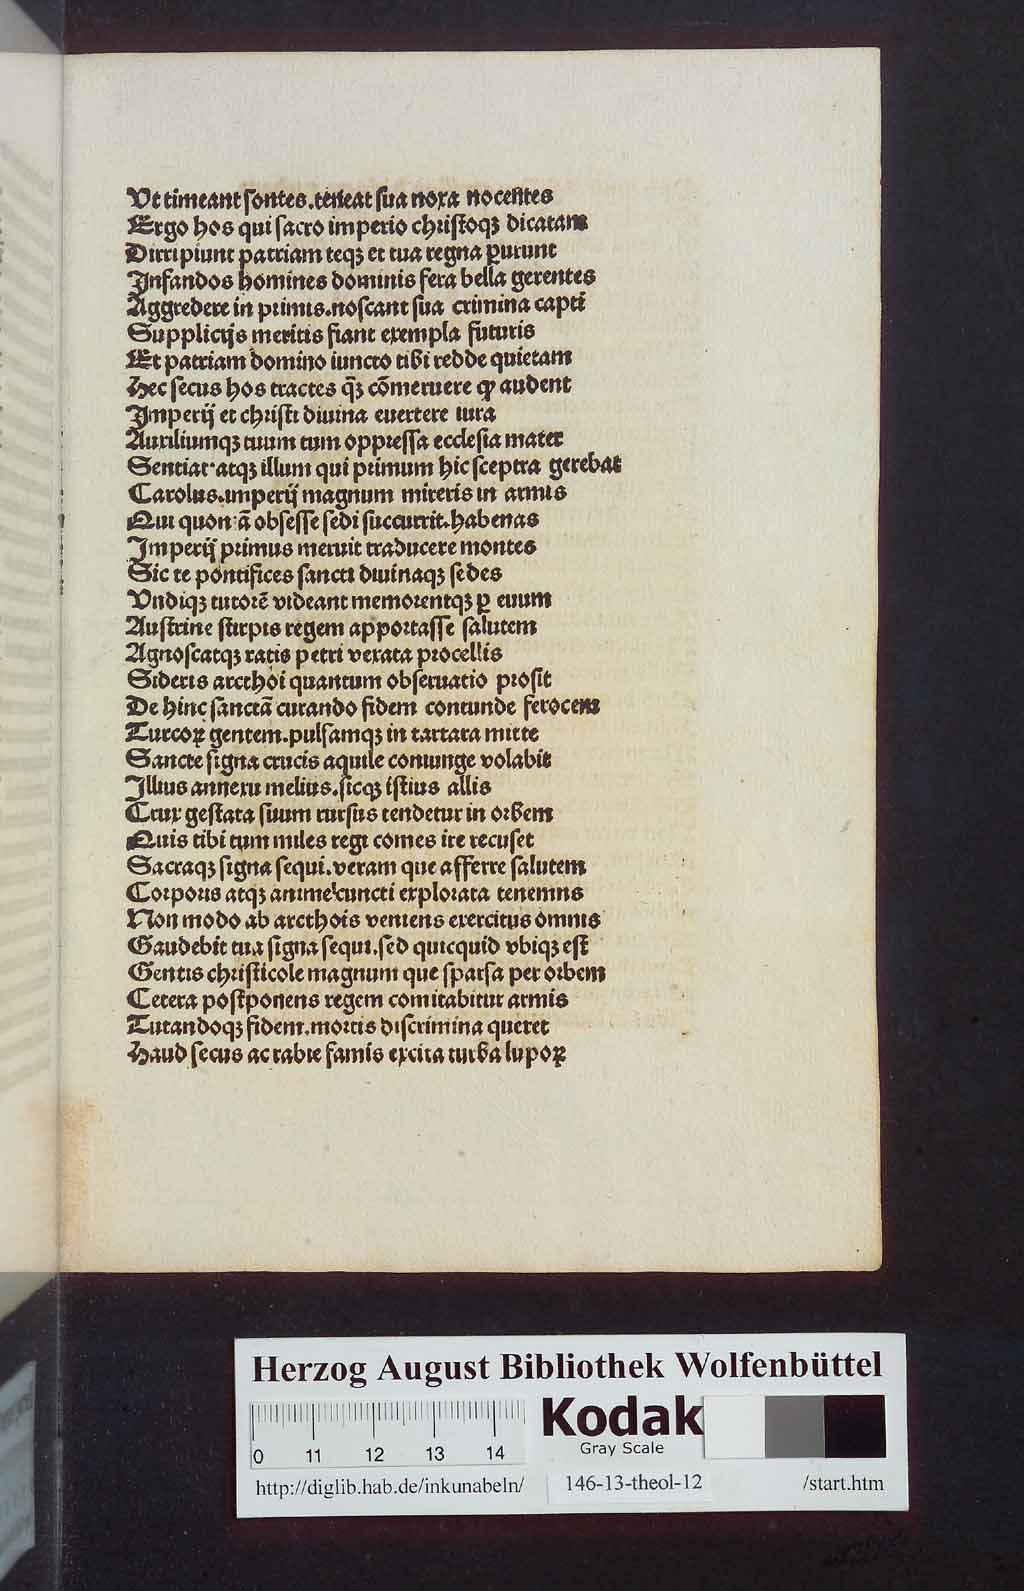 Vt timeant sontes.teneat sua noxa nocentes
Ergo hos qui sacro imperio christoqꝫ dicatam
Dirripiunt patriam teqꝫ et tua regna ꝑurunt
Infandos homines dominis fera bella gerentes
Aggredere in primis.noscant sua crimina capti
Supplicijs meritis fiant exempla futuris
Et patriam domino iuncto tibi redde quietam
Hec secus hos tractes q̄ꝫ cōmeruere ꝙ audent
Imperij et christi diuina euertere iura
Auxiliumqꝫ tuum tum oppressa ecclesia mater
Sentiat·atqꝫ illum qui primum hic sceptra gerebat
Carolus.imperij magnum mireris in armis
Qui quon:ā obsesse sedi succurrit.habenas
Imperij primus meruit traducere montes
Sic te pontifices sancti diuinaqꝫ sedes
Vndiqꝫ tutorē videant memorentqꝫ ꝑ euum
Austrine stirpis regem apportasse salutem
Agnoscatqꝫ ratis petri vexata procellis
Sideris arcthoi quantum obseruatio prosit
De hinc sanctā curando fidem contunde ferocem
Turcoꝝ gentem.pulsamqꝫ in tartara mitte
Sancte signa crucis aquile coniunge volabit
Illius annexu melius.sicqꝫ istius allis
Crux gestata suum rursus tendetur in orbem
Quis tibi tum miles regi comes ire recuset
Sacraqꝫ signa sequi.veram que afferre salutem
Corporis atqꝫ anime cuncti explorata tenemns
Non modo ab arcthois veniens exercitus omnis
Gaudebit tua signa sequi.sed quicquid vbiqꝫ est
Gentis christicole magnum que sparsa per orbem
Cetera postponens regem comitabitur armis
Tutandoqꝫ fidem.mortis discrimina queret
Haud secus ac rabie famis excita turba lupoꝝ
Herzog August Bibliothek Wolfenbüttel
Kodak
Gray Scale
0 11 12 13 14
http://diglib.hab.de/inkunabeln/ 146-13-theol-12 /start.htm